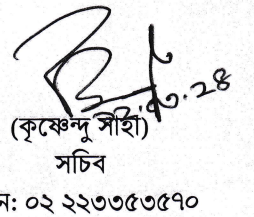 (কৃষ্ণেন্দু সাহা)
সচিব
ন: ০২ ২২৩৩৫৩৫৭০